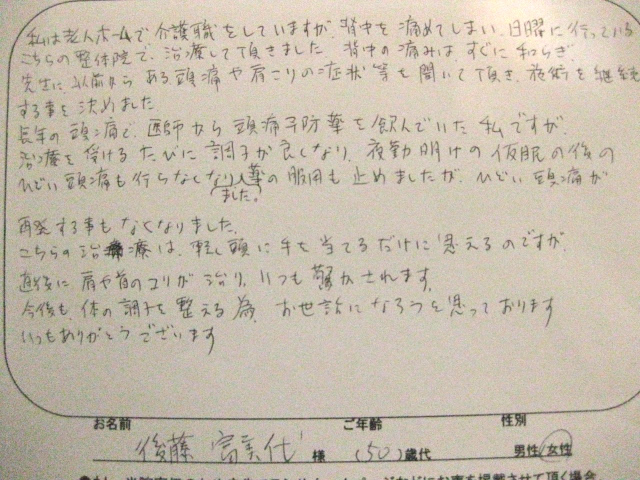 私は老人ホームで介護職をしていますが、背中を痛めてしまい、日曜に行っている
こちらの整体院で、治療して頂きました 背中の痛みは、すぐに和らぎ
先生に、以前からある頭痛や肩こりの症状等も聞いて頂き、施術を継続
する事を決めました
長年の頭痛で、医師から頭痛予防薬を飲んでいた私ですが、
治療を受けるたびに調子が良くなり、夜勤明けの仮眠の後の
ひどい頭痛も行らなくなり、薬の服用も止めましたが、ひどい頭痛が
ました。
再発する事もなくなりました。
こちらの治療は、軽く頭に手を当てるだけに思えるのですが、
直後に肩や首のコリが治り、いつも驚かされます。
今後も、体の調子を整える為、お世話になろうと思っております
いつもありがとうございます
お名前 ご年齢 性別
後藤 富美代 様 (50)歳代 男性 女性